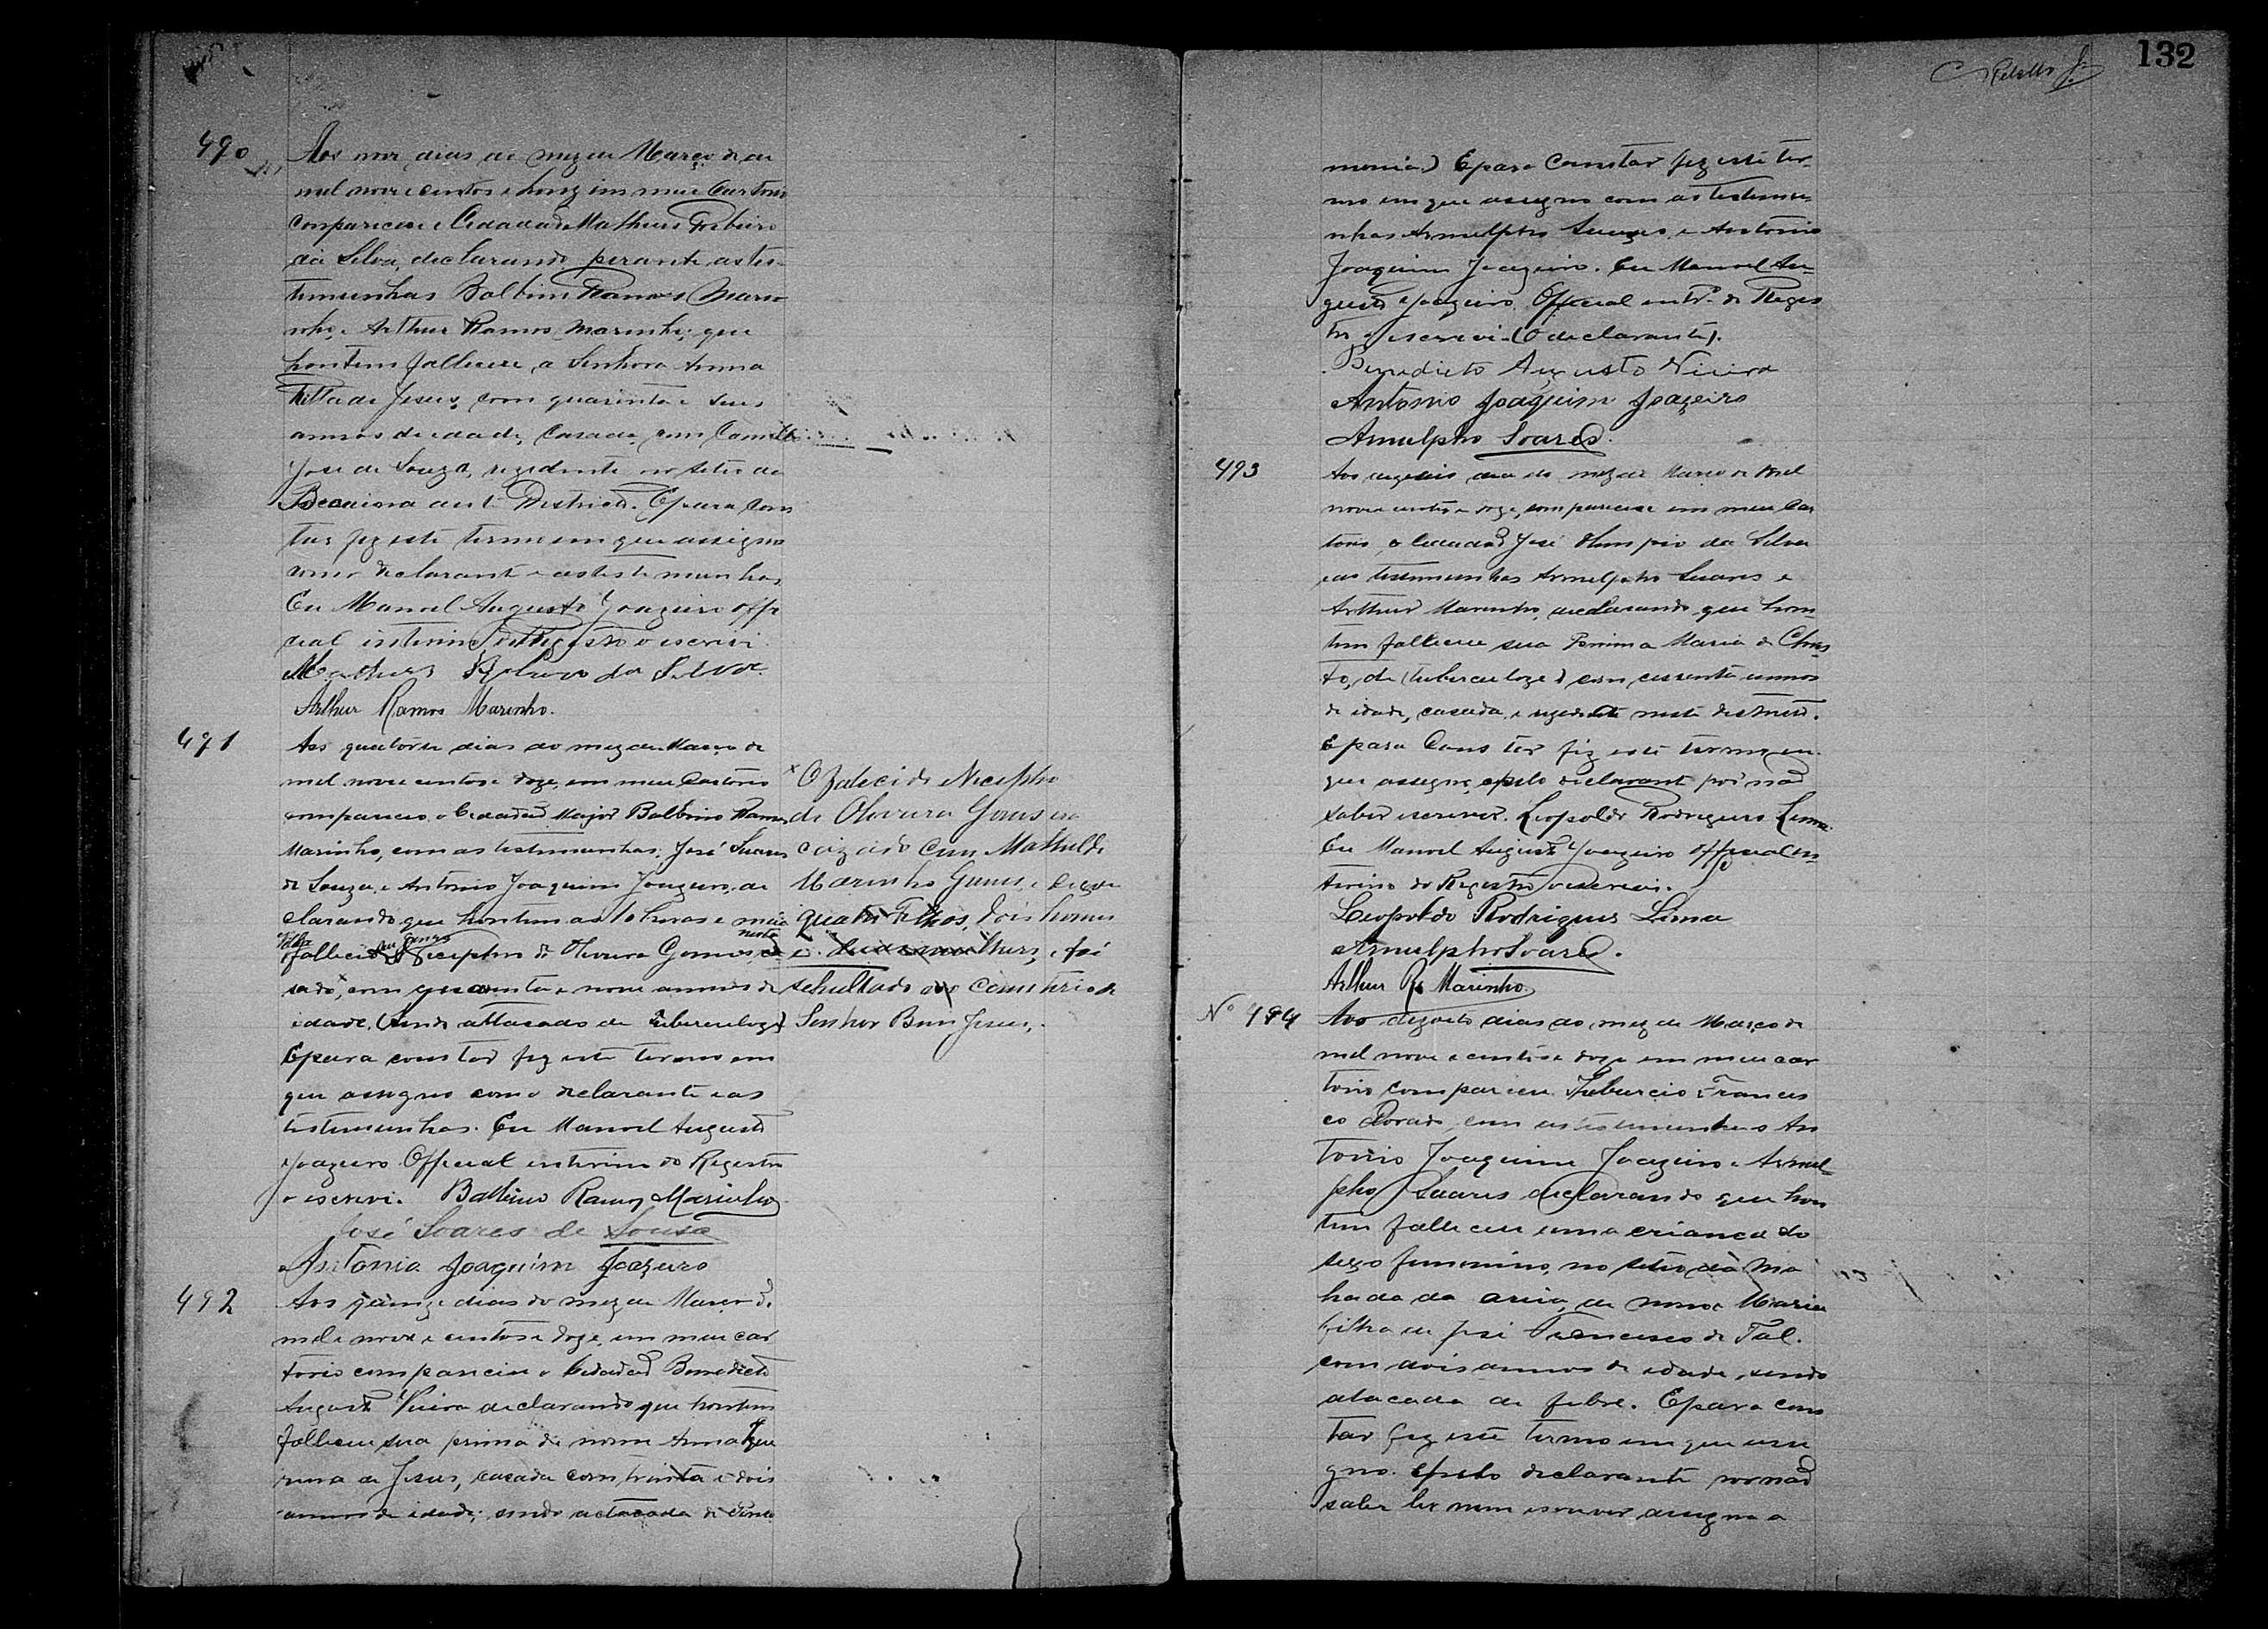 490
Aos nove dias do mez de Março de
mil nove centos e honze em meu Cartorio
compareceu o Cidadão Matheus
da Silva, declarando perante as tes-
temunhas Balbino Ramos Mari
nho, e Arthur Ramos Marinho; que
hontem falleceu, a Senhora Anna
de Jesus, com quarenta e seis
annos de idade, Casada com Camillo
José de Souza, rezidente no Sitio de
deste Districto. E para cons
tar fiz este termo em que assigno
como declarante e as testemunhas
Eu Manoel Augusto Joazeiro offi
cial interino do Registro o escrevi.
Matheus da Silva
Arthur Ramos Marinho.
491
Aos quatorze dias do mez de Março de
mil nove centos e doze, em meu Cartorio
compareceu, o Cidadão Major Balbino Ramos
Marinho, com as testemunhas: José Suares
de Souza, e Antonio Joaquim Joazeiro, de
clarando que hontem as 10 horas e meia
nesta
Villa
seu genro
falleceu Nicephro de Oliveira Gomes, ca
sado, com quarenta e nove annos de
idade, (Sendo attacado de Tuberculoze)
E para constar fiz este termo em
que assigno como declarante e as
testemunhas. Eu Manoel Augusto
Joazeiro Official interino do Registro
o escrevi. Balbino Ramos Marinho
José Soares de Sousa
Antonio Joaquim Joazeiro
x O falecido Nicephro
de Oliveira Gomes era
cazado com Mathilde
Marinho Gomes, e deixou
quatro Filhos, dois homens
e duas mulheres, e foi
sepultado no Cemiterio de
Senhor Bom Jesus.
492
Aos quinze dias do mez de Março de
mil e nove centos e doze, em meu car
torio compareceu o Cidadão Benedicto
Augusto Vieira declarando que hontem
falleceu sua prima de nome Anna
de Jesus, casada com trinta e dois
annos de idade; sendo actacada de Pneu
132
monia) E para Constar fiz este ter-
mo em que assigno com as testemu-
nhas Arnulpho Suares, e Antonio
Joaquim Joazeiro. Eu Manoel Au-
gusto Joazeiro. Official intrº. do Regis
tro o escrevi. (O declarante).
Benedicto Augusto Vieira
Antonio Joaquim Joazeiro
Arnulpho Soares.
493
Aos dezeseis dia do mez de Março de mil
nove centos e doze, compareceu em meu Car
torio, o Cidadão José Olimpio da Silva
e as testemunhas Arnulpho Suares e
Arthur Marinho, declarando que hon-
tem falleceu sua Prima Maria de Chris
to, de (tuberculoze) com cessenta annos
de idade, casada, e rezidente neste destricto.
E para Constar fiz este termo em
que assigno, e pelo declarante por não
saber escrever. Leopoldo Rodrigues Lima.
Eu Manoel Augusto Joazeiro official in-
terino do Registro o escrevi.
Leopoldo Rodrigues Lima
Arnulpho Soares.
Arthur Rs Marinho
Nº 494
Aos dezoito dias do mez de Março de
mil nove e centos e doze em meu car
torio compareceu Tiburcio Francis
co Dorado, com as testemunhas An
tonio Joaquim Joazeiro e Arnul-
pho Suares declarando que hon
tem falleceu uma criança do
sexo feminino, no sitio da Ma
lhada da areia, de nome Maria
filha de José Francisco de Tal.
com dois annos de idade, sendo
atacada de febre. E para cons
tar fiz este termo em que assi
gno. E pelo declarante por não
saber ler nem escrever assigna a